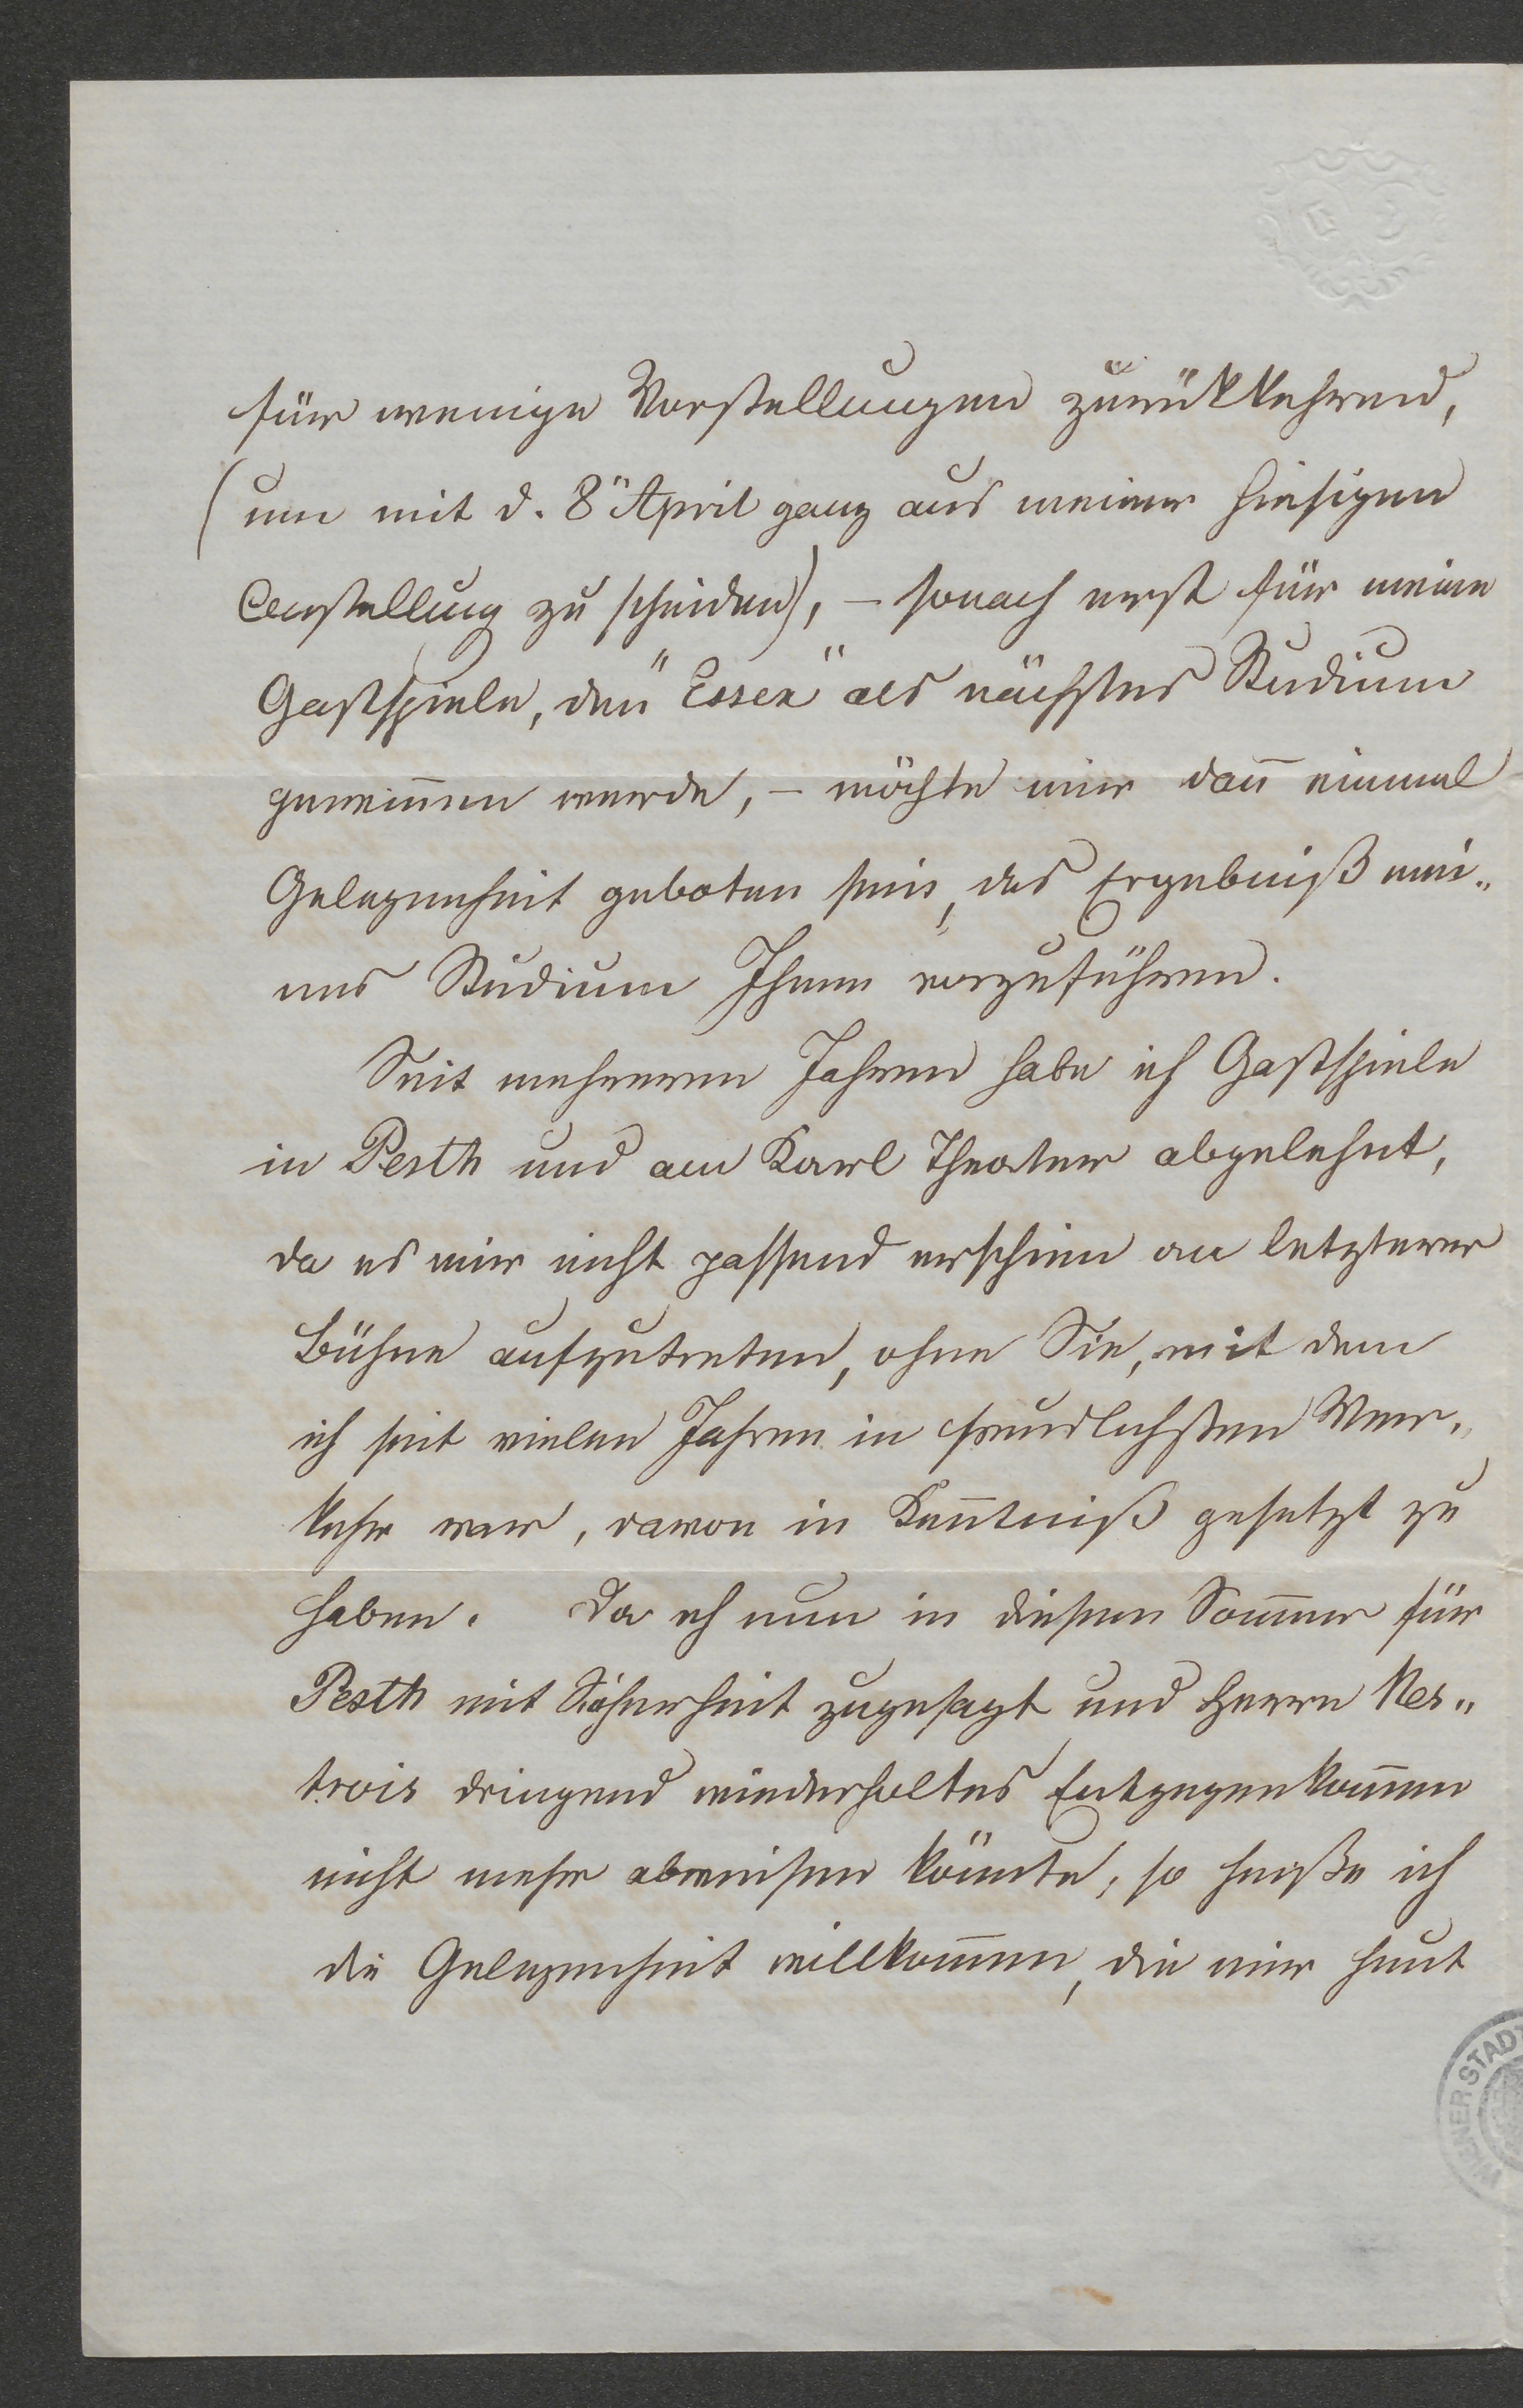 für wenige Vorstellungen zurükkehrend,
(um mit d. 8" April ganz aus meiner hiesigen
Anstellung zu scheiden), – sonach erst für meine
Gastspiele, den "Essex" als nächstes Studium
gewinnen werde, – möchte mir dañ einmal
Gelegenheit geboten sein, das Ergebniß mei„
nes Studium Ihnen vorzuführen.
Seit mehreren Jahren habe ich Gastspiele
in Pesth und am Karl Theater abgelehnt,
da es mir nicht passend erschien an letzterer
Bühne aufzutreten, ohne Sie, mit dem
ich seit vielen Jahren in freundlichsten Ver„
kehr war, davon in Keñtniß gesetzt zu
haben. Da ich nun in diesem Som̄er für
Pesth mit Sicherheit zugesagt und Herrn Nes„
trois dringend wiederholtes Entgegenkom̄en
nicht mehr abweisen könnte, so heiße ich
die Gelegenheit willkom̄en, die mir heut
WIENER STADT